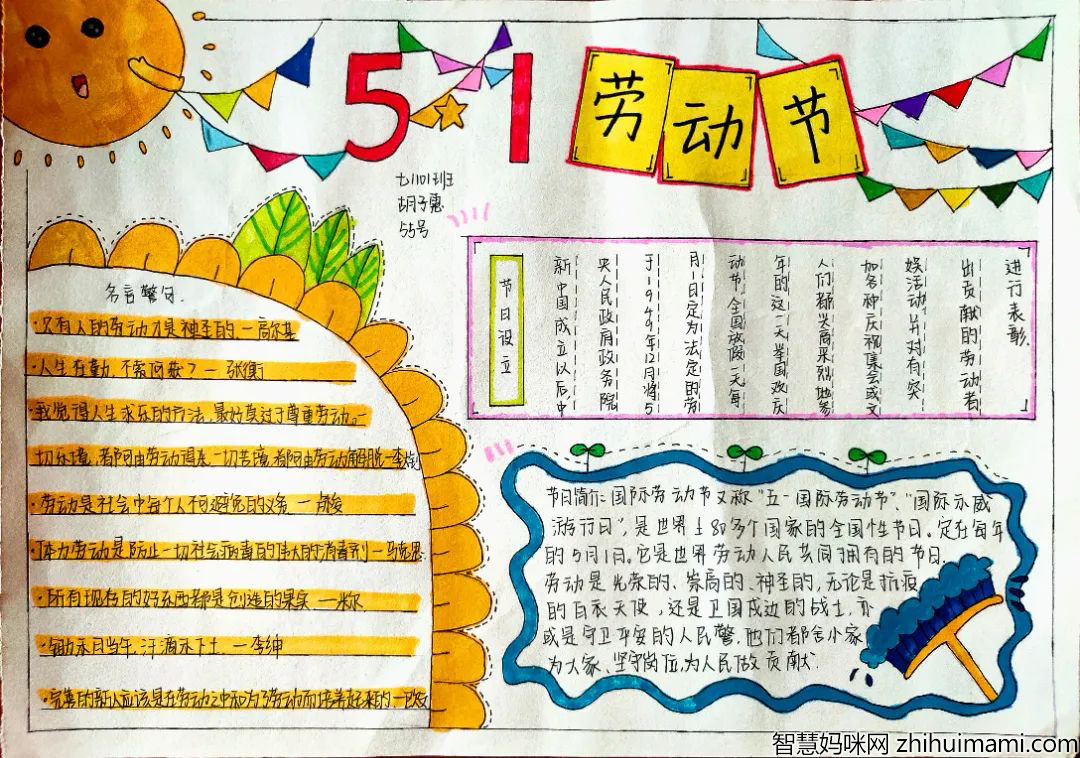 5.1
劳动节
七1101班
胡子惠
55号
名言警句.
·只有人的劳动才是神圣的.一高尔基
·人生在勤,不索何获？一 张衡
·我觉得人生求乐的方法,最好莫过于尊重劳动。一
切乐境,都可由劳动得来,一切苦境,都可由劳动解脱一李大钊
·劳动是社会中每个人不可避免的义务 一 卢梭
·体力劳动是防止一切社会病毒的伟大的消毒剂一马克思
·所有现存的好东西都是创造的果实 一米尔
·锄禾日当午,汗滴禾下土. 一李绅
·完善的新人应该是在劳动之中和为了劳动而培养起来的一欧文
节日设立
新中国成立以后,中
央人民政府政务院
于1949年12月将5
月1日定为法定的劳
动节,全国放假一天。每
年的这一天,举国欢庆
人们都兴高采烈地参
加各种庆祝集会或文
娱活动,并对有突
出贡献的劳动者
进行表彰.
节日简介:国际劳动节又称"五一国际劳动节"、"国际示威
游行日",是世界上80多个国家的全国性节日。定在每年
的5月1日。它是世界劳动人民共同拥有的节日.
劳动是光荣的、崇高的、神圣的,无论是抗疫
的白衣天使,还是卫国戍边的战士,亦
或是守卫平安的人民警,他们都舍小家
为大家、坚守岗位,为人民做贡献.
智慧妈咪网 zhihuimami.com